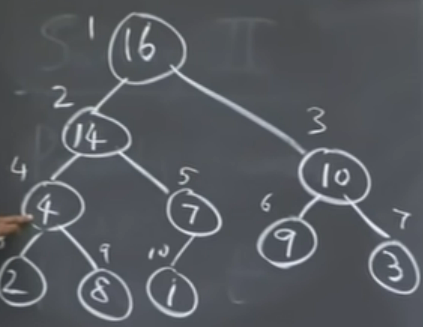 1
16
2
14
3
10
4
4
5
7
6
9
7
3
2
9
8
10
1